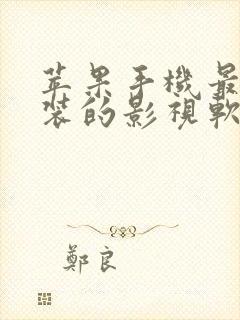 苹果手機最
裝的影視軟
鄭良